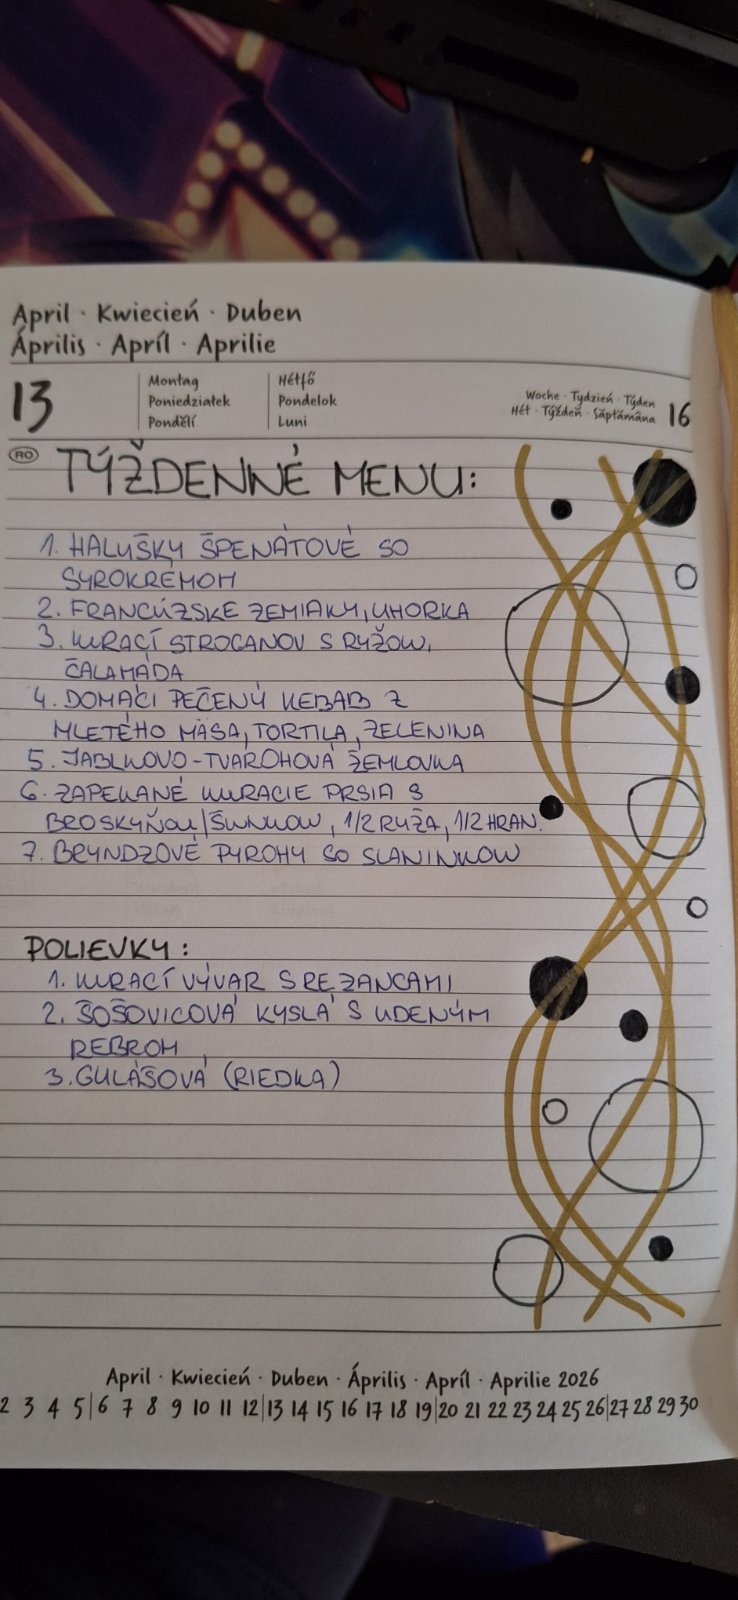 April · Kwiecień · Duben
Április · Apríl · Aprilie
13
Montag
Poniedziałek
Pondělí
Hétfő
Pondelok
Luni
Woche · Tydzień · Týden
Hét · Týždeň · Săptămâna
16
RO
TÝŽDENNÉ MENU:
1. HALUŠKY ŠPENÁTOVÉ SO
SYROKRÉMOM
2. FRANCÚZSKE ZEMIAKY, UHORKA
3. KURACÍ STROGANOV S RYŽOU,
ČALAMÁDA
4. DOMÁCI PEČENÝ KEBAB Z
MLETÉHO MÄSA, TORTILA, ZELENINA
5. JABLKOVO-TVAROHOVÁ ŽEMLOVKA
6. ZAPEKANÉ KURACIE PRSIA S
BROSKYŇOU/ŠUNKOU, 1/2 RYŽA, 1/2 HRAN.
7. BRYNDZOVÉ PYROHY SO SLANINKOU
POLIEVKY:
1. KURACÍ VÝVAR S REZANCAMI
2. ŠOŠOVICOVÁ KYSLÁ S ÚDENÝM
REBROM
3. GULÁŠOVÁ (RIEDKA)
April · Kwiecień · Duben · Április · Apríl · Aprilie 2026
2 3 4 5|6 7 8 9 10 11 12|13 14 15 16 17 18 19|20 21 22 23 24 25 26|27 28 29 30